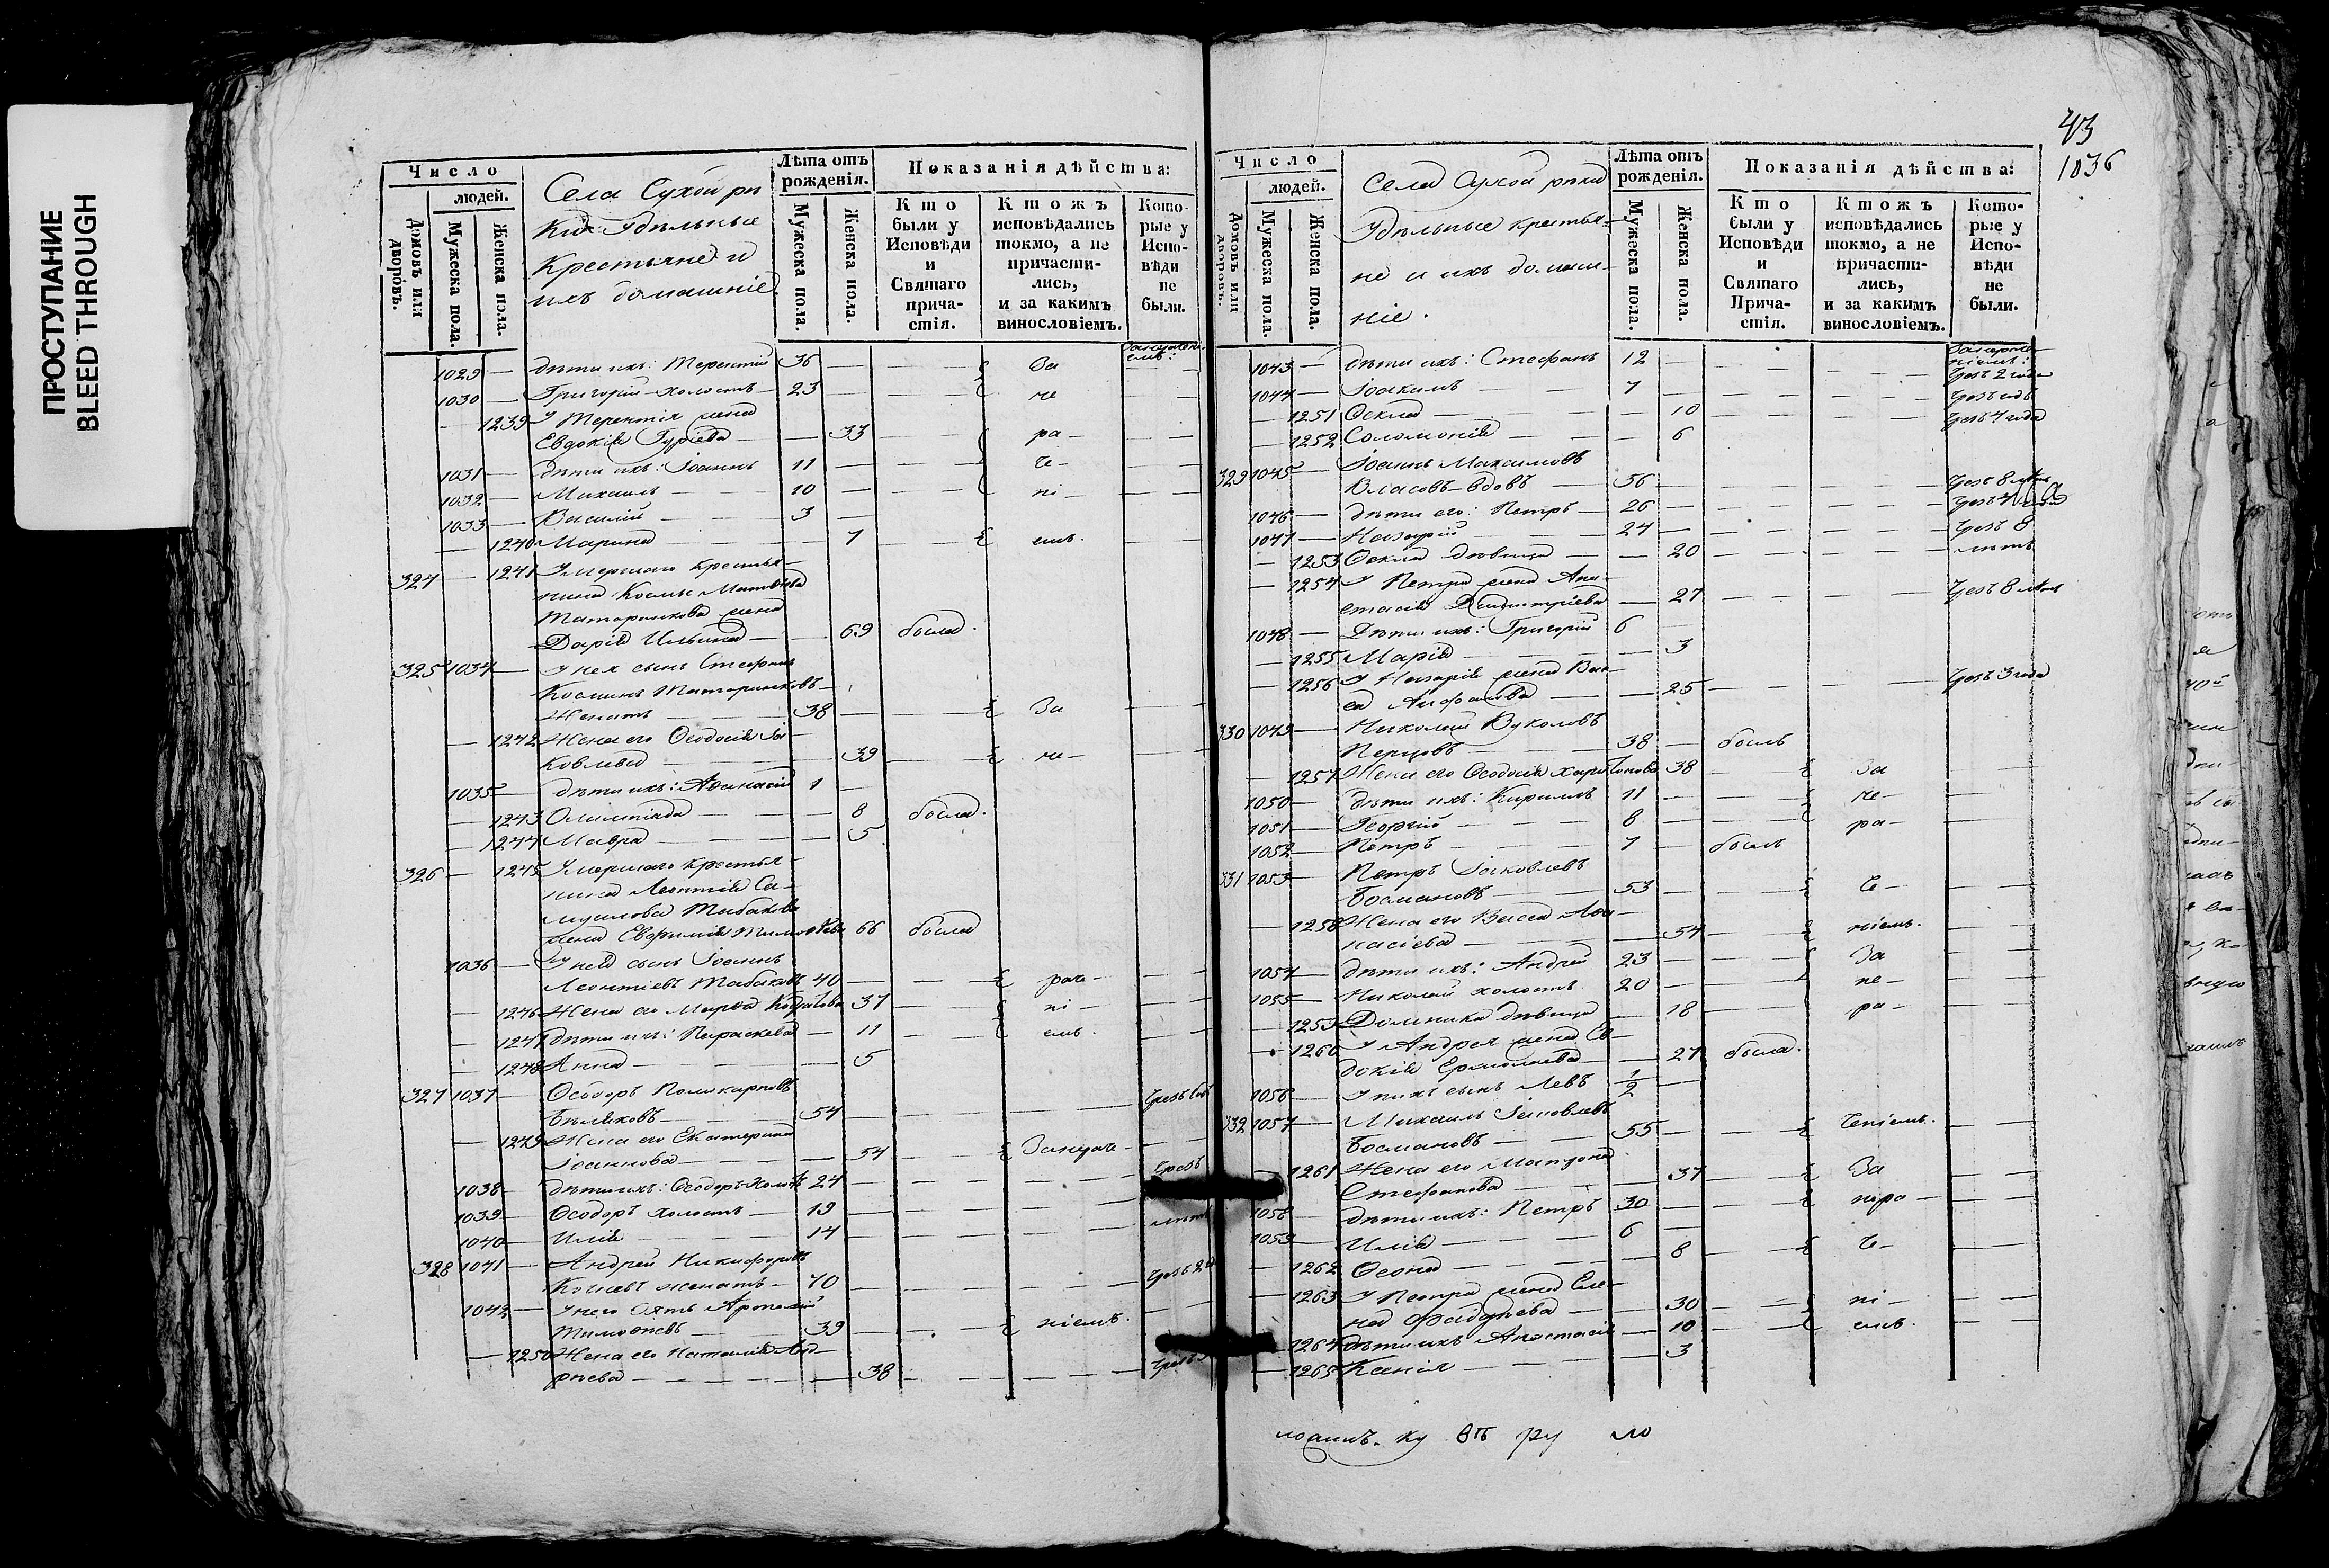 ПРОСТУПАНИЕ
BLEED THROUGH
Число
людей.
Домовъ или дворовъ.
Мужеска пола.
Женска пола.
Села Сухой рѣ
ки Удѣльные
Крестьяне и
ихъ домашніе
Лѣта отъ рожденія.
Мужеска пола.
Женска пола.
Показанія дѣйства:
Кто были у Исповѣди и Святаго причастія.
Ктожъ исповѣдались токмо, а не причастились, и за какимъ винословіемъ.
Которые у Исповѣди не были.
1029 — дѣти ихъ: Терентій 36 — За
1030 — Григорій холостъ 23 — не
— 1239 У Терентія жена
Евдокія Гуріева — 33 — ра
1031 — дѣти ихъ: Іоаннъ 11 — че
1032 — Михаилъ 10 — ні
1033 — Василій 3 —
— 1240 Марина — 7 — емъ.
324 — 1241 Умершаго крестья-
нина Космы Матвѣева
жена
Дарія Ильина — 69 была.
325 1034 — У нея сынъ Стефанъ
Косминъ
Женатъ 38 — За
— 1242 Жена его Ѳеодосія Іа-
ковлева — 39 — не
1035 — дѣти ихъ: Аѳанасій 1 —
— 1243 Олимпіада — 8 была.
— 1244 Мавра — 5
326 — 1245 Умершаго крестья-
нина Леонтія Са-
муилова Табакова
жена Евфимія Тимоѳеева 66 была
1036 — У нея сынъ Іоаннъ
Леонтіевъ Табаковъ 40 — раче
— 1246 Жена его Марѳа 37 — ні
— 1247 дѣти ихъ: Параскева — 11 — емъ.
— 1248 Анна — 5
327 1037 — Ѳеодоръ Поликарповъ
Бѣляковъ 54 —
— 1249 Жена его Екатерина
Іоаннова — 54 — Занера
1038 — дѣти ихъ: Ѳеодоръ 24 — чрезъ
1039 — Ѳеодоръ холостъ 19 —
1040 — Илія 14 — лѣтъ
328 1041 — Андрей Никифоровъ
женатъ 70 — чрезъ 2
1042 — У него зять
Тимоѳеевъ 39 — ніемъ.
— 1250 Жена его Наталія Анд-
рѣева — 38 — чрезъ
43
1036
Число
людей.
Домовъ или дворовъ.
Мужеска пола.
Женска пола.
Села Сухой рѣки
Удѣльные крестья-
не и ихъ домаш-
ніе.
Лѣта отъ рожденія.
Мужеска пола.
Женска пола.
Показанія дѣйства:
Кто были у Исповѣди и Святаго Причастія.
Ктожъ исповѣдались токмо, а не причастились, и за какимъ винословіемъ.
Которые у Исповѣди не были.
1043 — дѣти ихъ: Стефанъ 12 — чрезъ 2 года
1044 — Іоакимъ 7 — чрезъ годъ
— 1251 Ѳекла — 10 — чрезъ 4 года
— 1252 Соломонія — 6
329 1045 — Іоаннъ Максимовъ
Власовъ вдовъ 56 — чрезъ 8 лѣтъ
1046 — дѣти его: Петръ 26 — чрезъ 4 года
1047 — Назарій 24 — чрезъ 8
— 1253 Ѳекла дѣвица — 20 — лѣтъ
— 1254 У Петра жена Ана-
стасія Димитріева — 27 — чрезъ 8 лѣтъ
1048 — Дѣти ихъ: Григорій 6 —
— 1255 Марія — 3
— 1256 У Назарія жена Вас-
са — 25 — чрезъ 3 года
330 1049 — Николай Вуколовъ
Перцовъ 38 — былъ
— 1257 Жена его Ѳеодосія Харитонова 38 — За
1050 — дѣти ихъ: Кириллъ 11 — не
1051 — Георгій 8 — ра
1052 — Петръ 7 — былъ
331 1053 — Петръ Іаковлевъ
Босмановъ 53 — че
— 1258 Жена его Васса Аѳа-
насіева — 54 — ніемъ.
1054 — дѣти ихъ: Андрей 23 — За
1055 — Николай холостъ 20 — не
— 1259 Домника дѣвица — 18 — ра
— 1260 У Андрея жена Ев-
докія Ермолаева — 27 была.
1056 — У нихъ сынъ Левъ 1/2 —
332 1057 — Михаилъ Іаковлевъ
Босмановъ 55 — ченіемъ.
— 1261 Жена его Матрона
Стефанова — 37 — За
1058 — дѣти ихъ: Петръ 30 — нера
1059 — Илія 6 —
— 1262 Ѳеона — 8 — че
— 1263 У Петра жена Еле-
на Фаддѣева — 30 — ні
— 1264 дѣти ихъ Анастасія — 10 — емъ.
— 1265 Ксенія — 3
ку въ ру